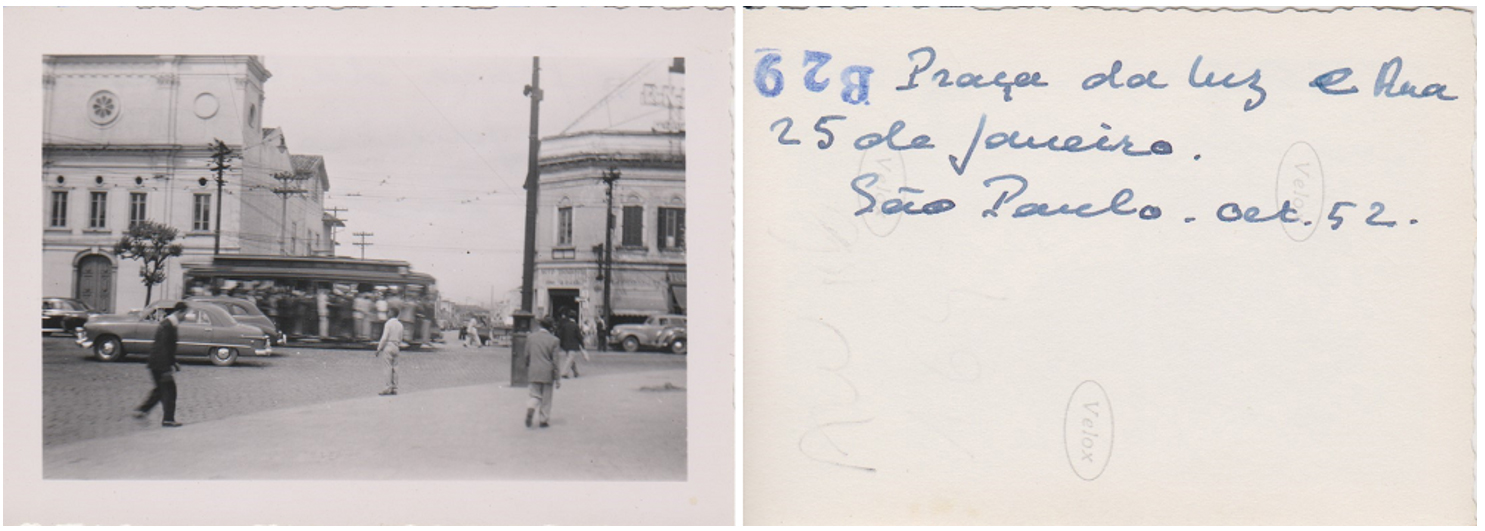 B29 Praça da luz e Rua
25 de janeiro.
São Paulo. oct. 52.
Velox
Velox
Velox